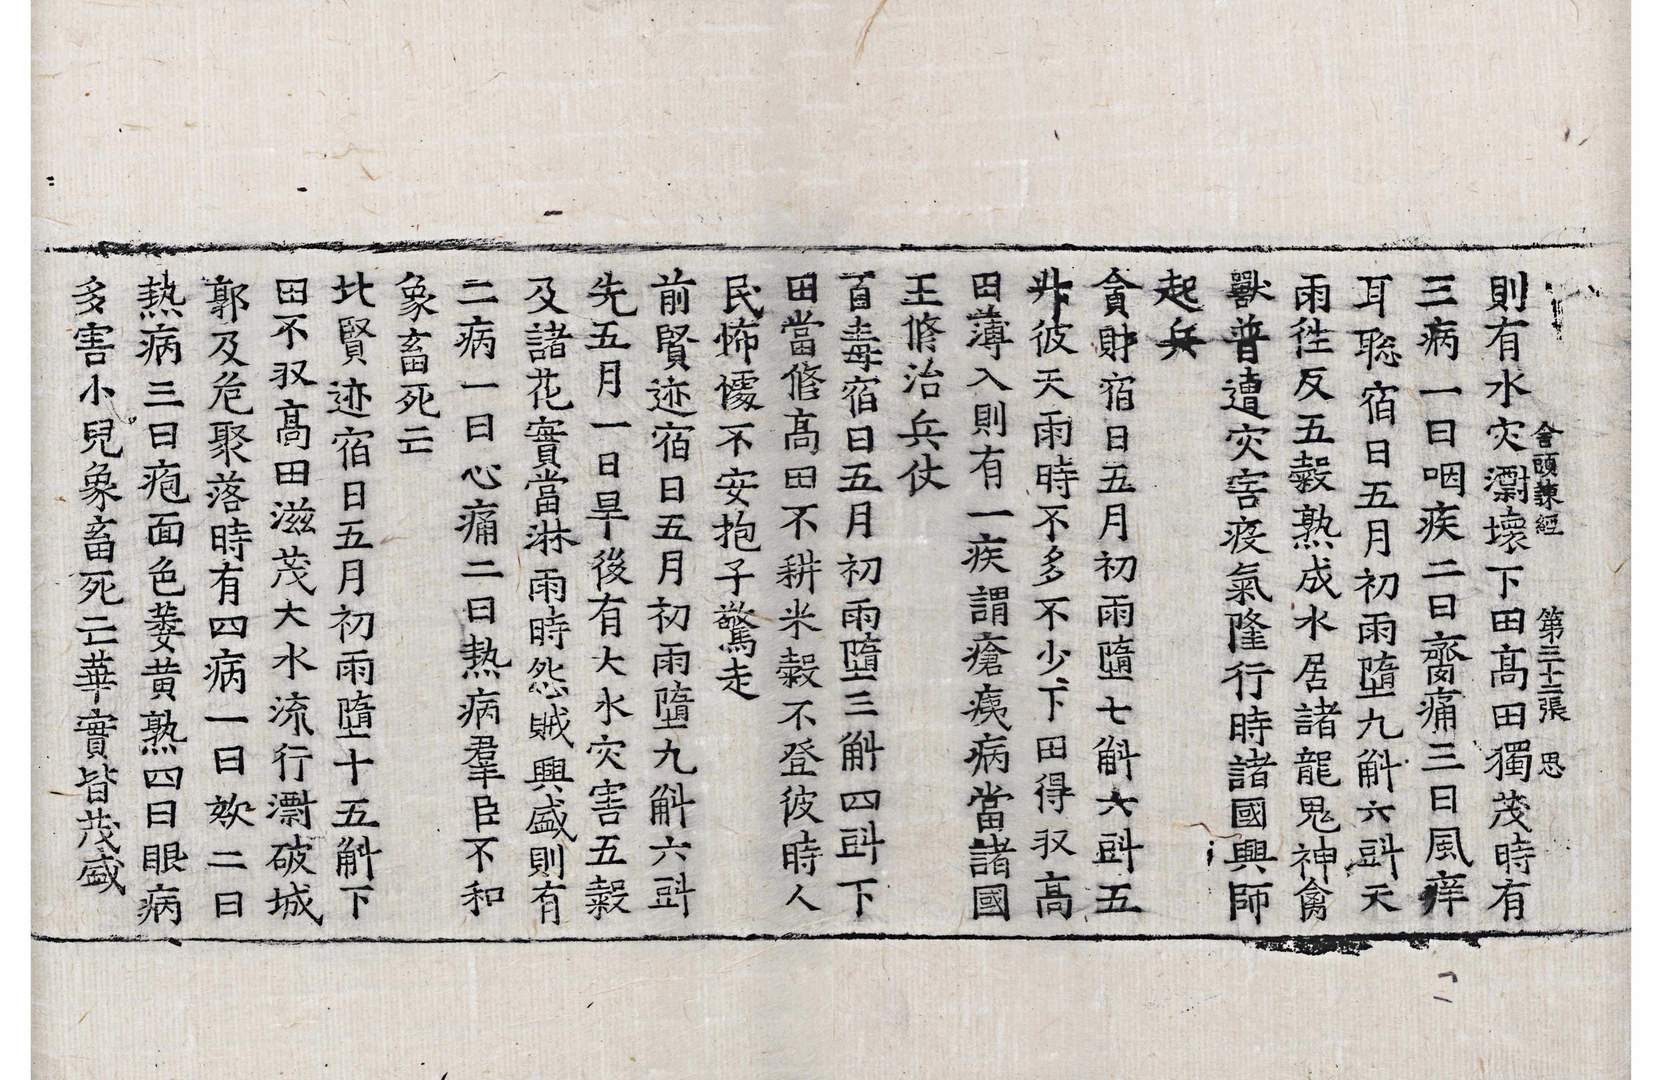 舍頭諫經　第三十二張　思
則有水灾㶑壞下田高田獨茂時有
三病一曰咽疾二曰齋痛三曰風痒
耳聡宿日五月初雨墮九斛六㪷天
雨徃反五糓熟成水居諸龍鬼神禽
獸普遭灾害疫氣隆行時諸國興師
起兵
貪財宿日五月初雨墮七斛六㪷五
彼天雨時不多不少下田得収高
田薄入則有一疾謂瘡痍病當諸國
王脩治兵仗
百毒宿日五月初雨墮三斛四㪷下
田當脩高田不耕米糓不登彼時人
民怖懅不安抱子驚走
前賢迹宿日五月初雨墮九斛六㪷
先五月一日旱後有大水灾害五糓
及諸花實當淋雨時怨賊興盛則有
二病一曰心痛二曰熱病羣臣不和
象畜死亡
北賢迹宿日五月初雨墮十五斛下
田不収高田滋茂大水流行㶑破城
郭及危聚落時有四病一曰欬二曰
熱病三曰疱面色萎黄熟四曰眼病
多害小兒象畜死亡華實皆茂盛